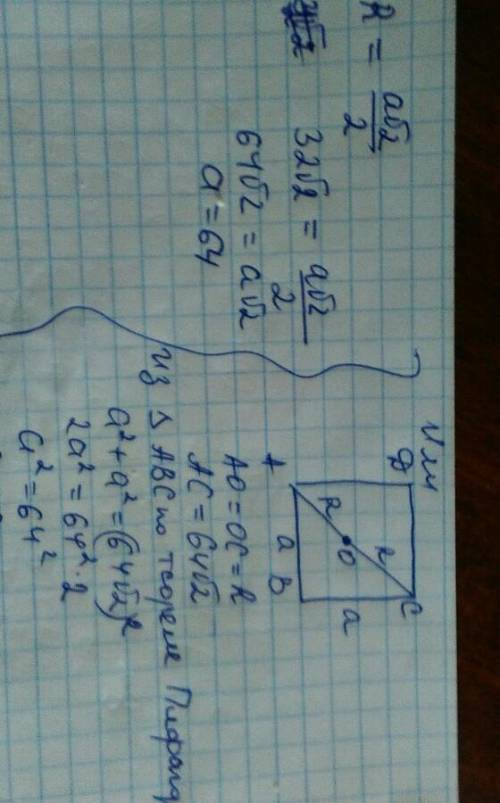 R = a√2/2
32√2 = a√2/2
64√2 = a√2
a = 64
Или
D C
R R
O
a
A a B
AO = OC = R
AC = 64√2
Из Δ ABC по теореме
a² + a² = (64√2)²
2a² = 64² · 2
a² = 64²